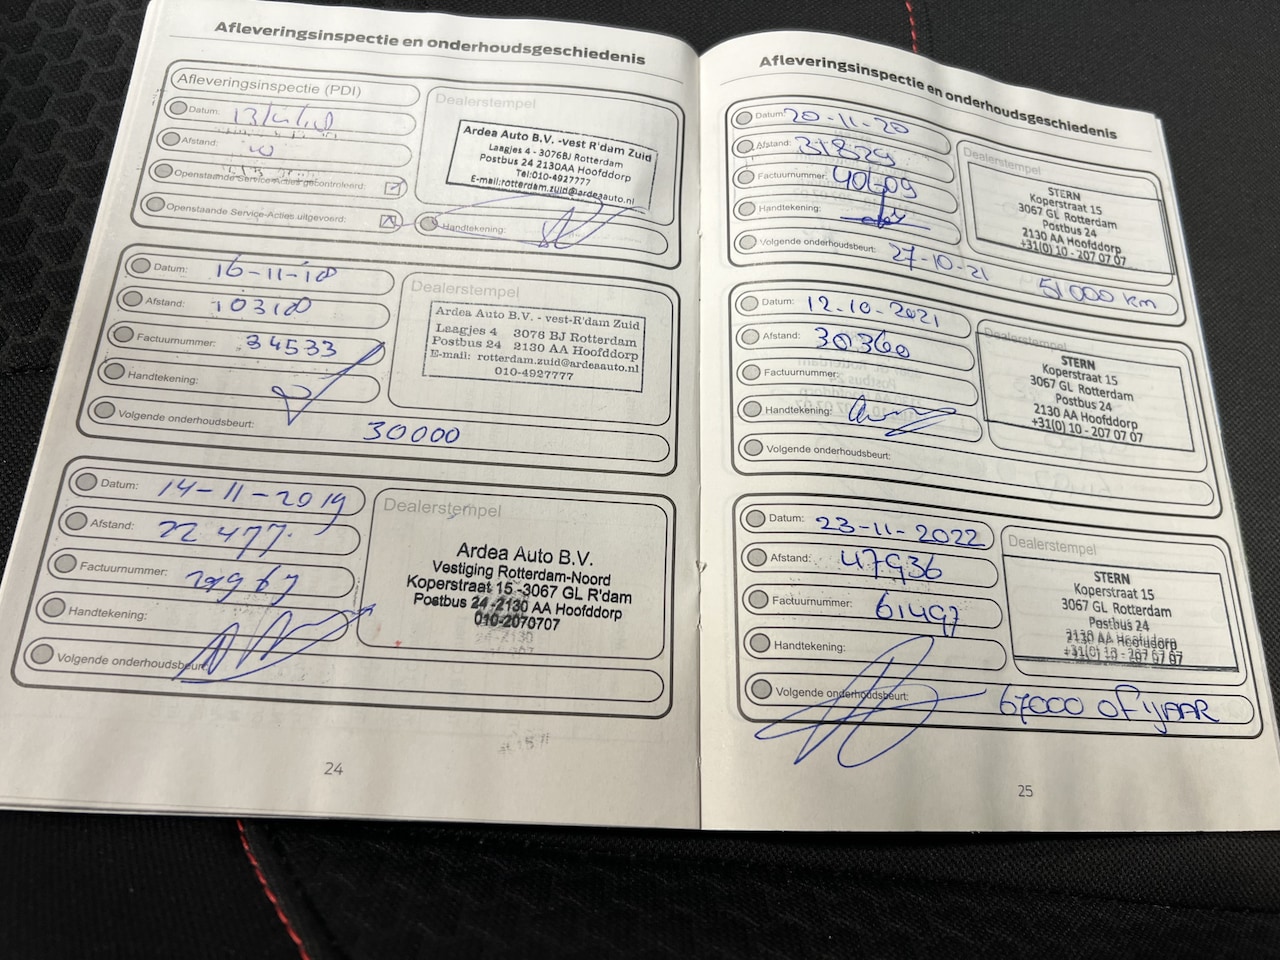 Afleveringsinspectie en onderhoudsgeschiedenis
Afleveringsinspectie (PDI)
Datum:
Afstand:
Openstaande Service-Acties gecontroleerd:
Openstaande Service-Acties uitgevoerd:
Handtekening:
Dealerstempel
Ardea Auto B.V. -vest R'dam Zuid
Laagjes 4 - 3076BJ Rotterdam
Postbus 24 2130AA Hoofddorp
Tel:010-4927777
E-mail:rotterdam.zuid@ardeaauto.nl
Datum: 16-11-18
Afstand: 10318
Factuurnummer: 34533
Handtekening:
Volgende onderhoudsbeurt: 30000
Dealerstempel
Ardea Auto B.V. - vest-R'dam Zuid
Laagjes 4 3076 BJ Rotterdam
Postbus 24 2130 AA Hoofddorp
E-mail: rotterdam.zuid@ardeaauto.nl
010-4927777
Datum: 14-11-2019
Afstand: 22477
Factuurnummer:
Handtekening:
Volgende onderhoudsbeurt:
Dealerstempel
Ardea Auto B.V.
Vestiging Rotterdam-Noord
Koperstraat 15 -3067 GL R'dam
Postbus 24 -2130 AA Hoofddorp
010-2070707
24
Afleveringsinspectie en onderhoudsgeschiedenis
Datum: 20-11-20
Afstand:
Factuurnummer:
Handtekening:
Volgende onderhoudsbeurt: 27-10-21 51000 km
Dealerstempel
STERN
Koperstraat 15
3067 GL Rotterdam
Postbus 24
2130 AA Hoofddorp
+31(0) 10 - 207 07 07
Datum: 12-10-2021
Afstand: 30360
Factuurnummer:
Handtekening:
Volgende onderhoudsbeurt:
Dealerstempel
STERN
Koperstraat 15
3067 GL Rotterdam
Postbus 24
2130 AA Hoofddorp
+31(0) 10 - 207 07 07
Datum: 23-11-2022
Afstand: 47936
Factuurnummer: 61497
Handtekening:
Volgende onderhoudsbeurt: 67000 OF 1JAAR
Dealerstempel
STERN
Koperstraat 15
3067 GL Rotterdam
Postbus 24
2130 AA Hoofddorp
+31(0) 10 - 207 07 07
25